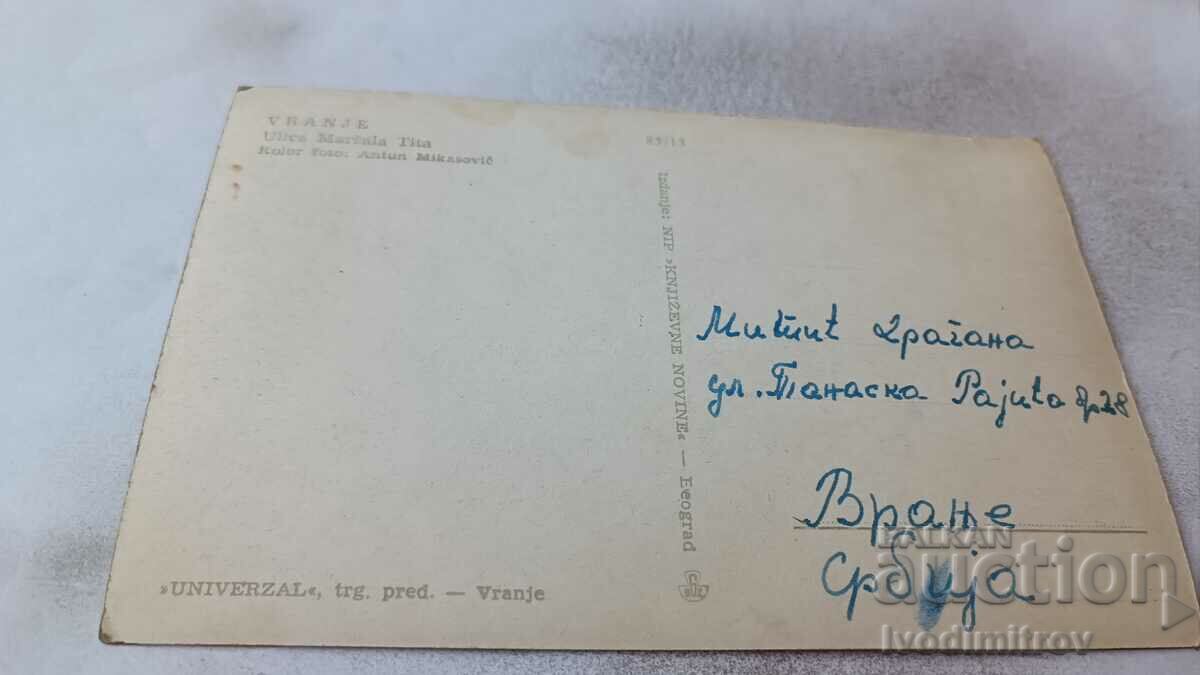 VRANJE
Ulica Maršala Tita
Kolor foto: Antun Mikasović
85/15
Izdanje: NIP »KNJIŽEVNE NOVINE« — Beograd
Митић Драгана
ул. Танаска Рајића бр 28
Врање
Србија
»UNIVERZAL«, trg. pred. — Vranje
BALKAN
auction
Ivodimitrov